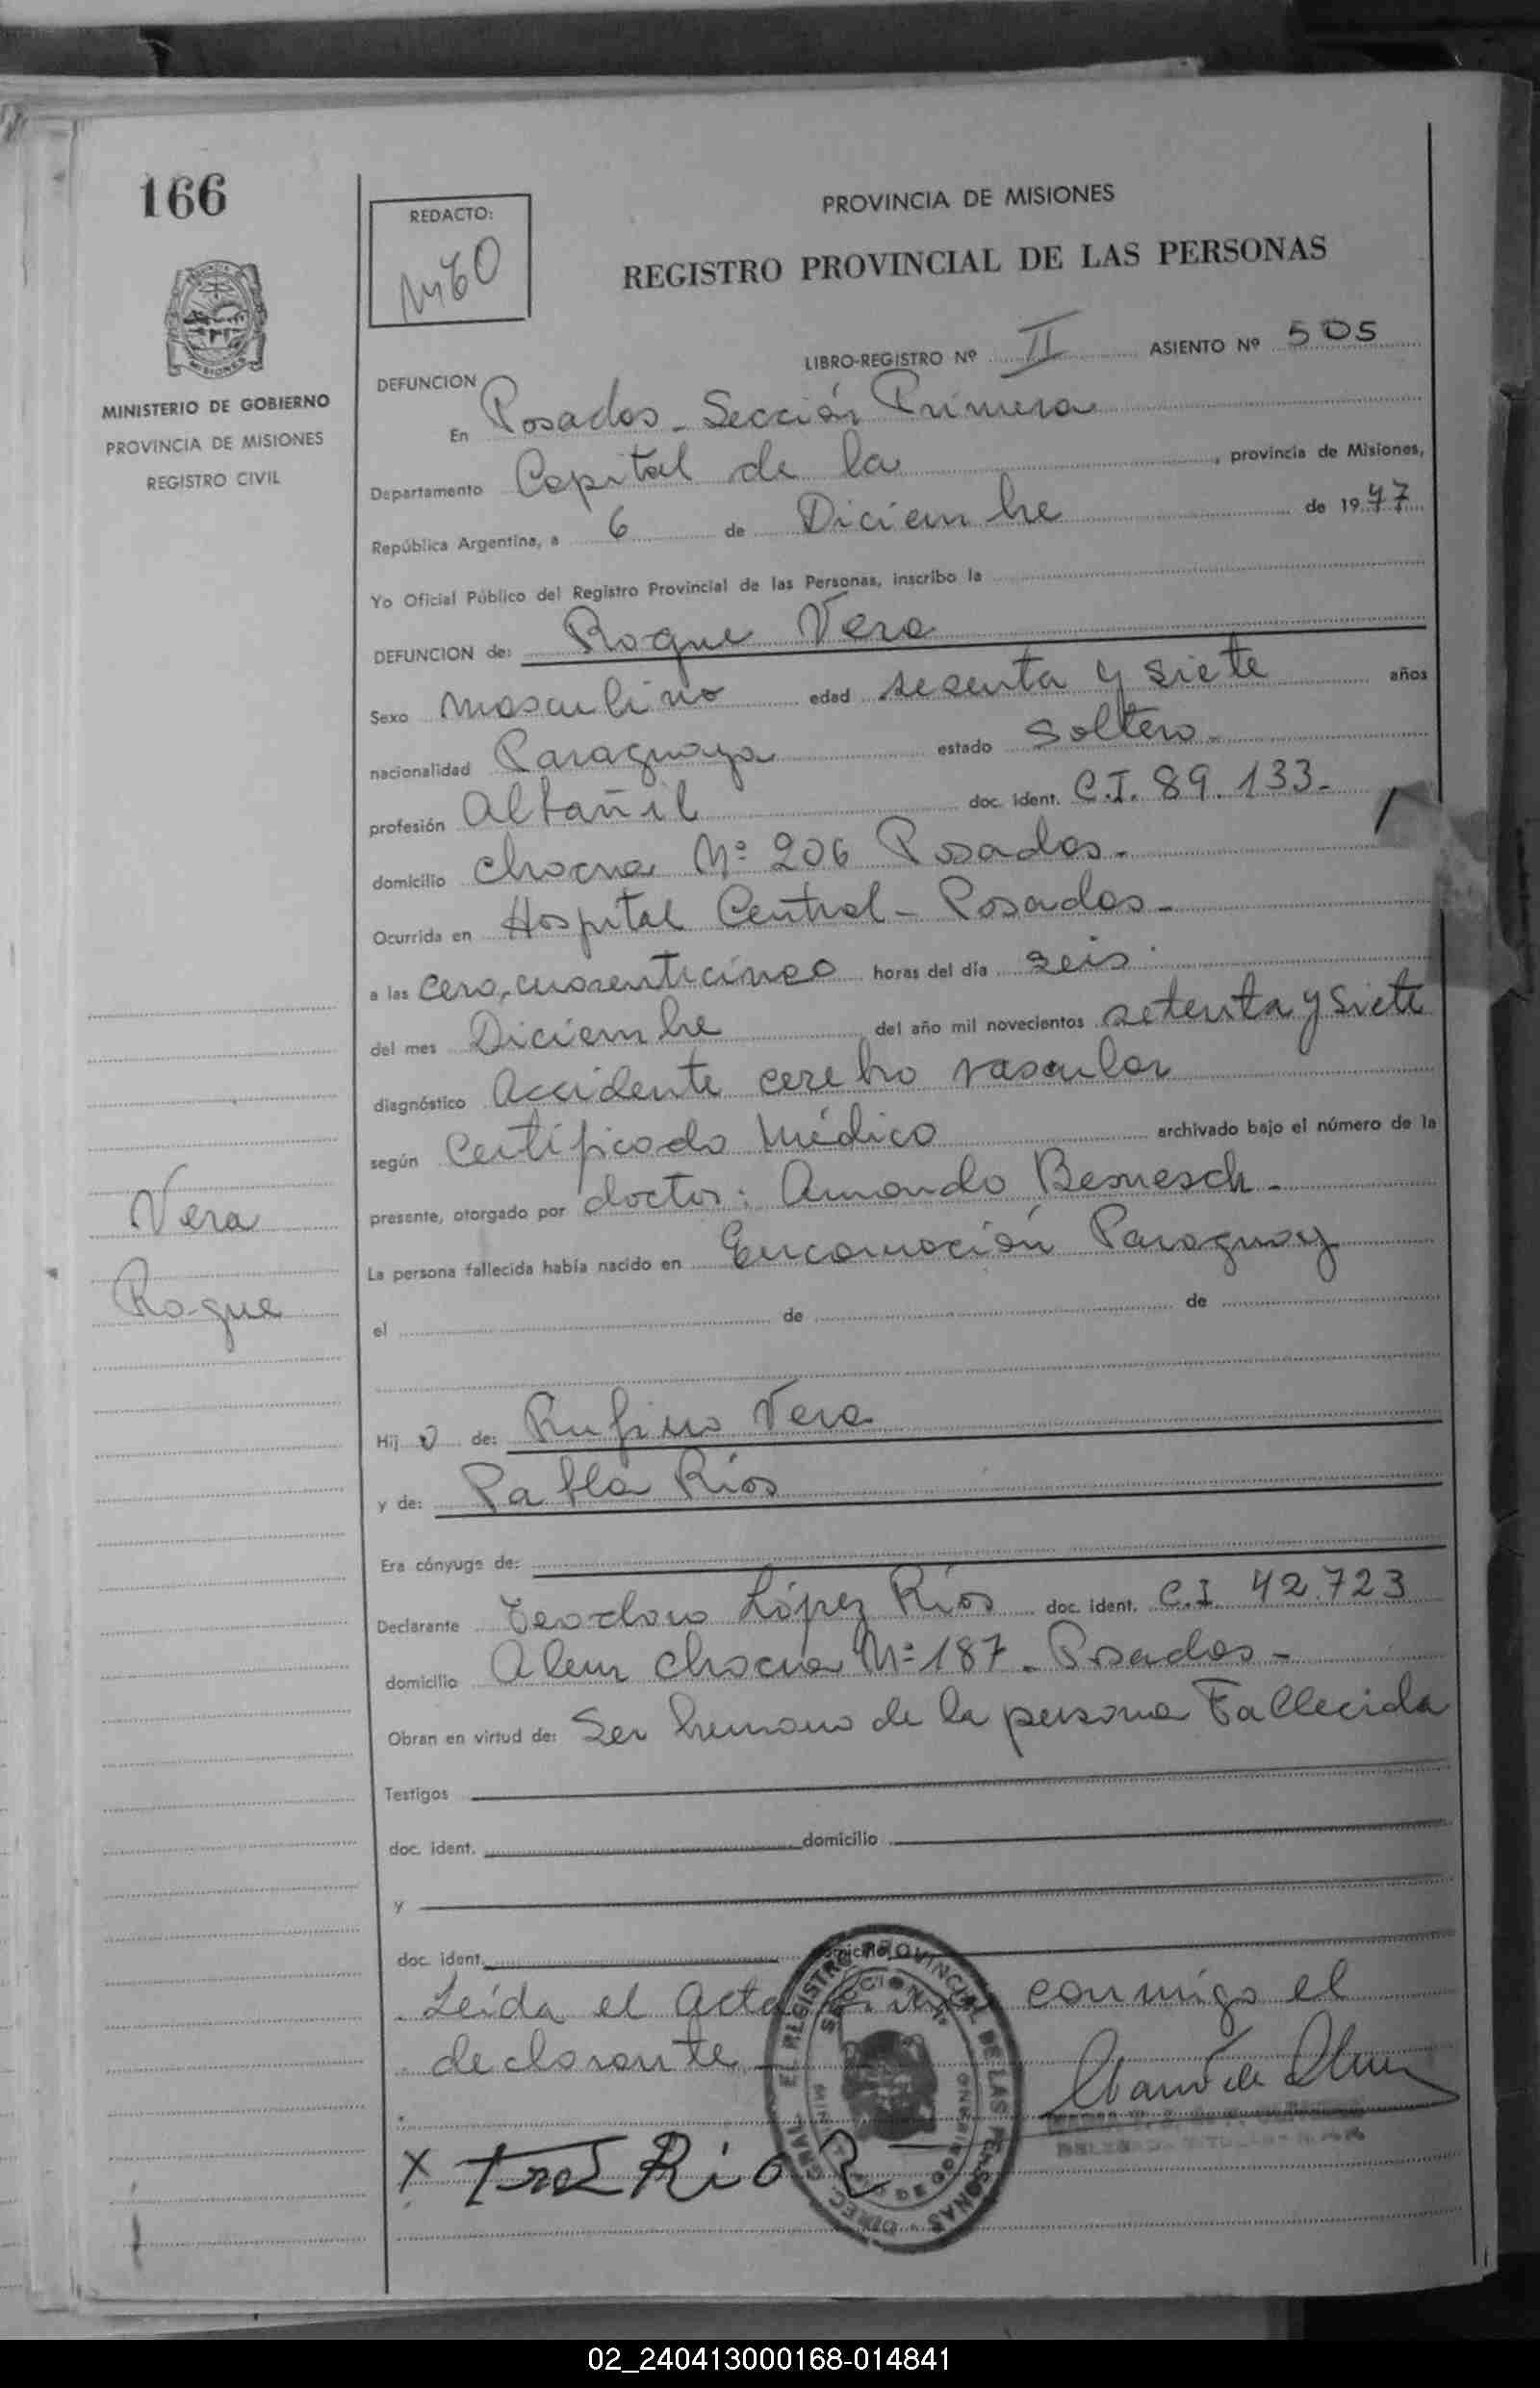 166
REDACTO:
PROVINCIA DE MISIONES
REGISTRO PROVINCIAL DE LAS PERSONAS
MISIONES
MINISTERIO DE GOBIERNO
PROVINCIA DE MISIONES
REGISTRO CIVIL
LIBRO-REGISTRO Nº II ASIENTO Nº 505
DEFUNCION
En Posadas - Sección Primera
Departamento Capital de la , provincia de Misiones,
República Argentina, a 6 de Diciembre de 1977
Yo Oficial Público del Registro Provincial de las Personas, inscribo la
DEFUNCION de: Roque Vera
Sexo masculino edad sesenta y siete años
nacionalidad Paraguaya estado Soltero -
profesión Albañil doc. ident. C.I. 89.133 -
domicilio chacra Nº 206 Posadas -
Ocurrida en Hospital Central - Posadas -
a las cero, cuarenticinco horas del día seis
del mes Diciembre del año mil novecientos setenta y siete
diagnóstico Accidente cerebro vascular
según Certificado Médico archivado bajo el número de la
presente, otorgado por doctor: Amando Bernesch -
La persona fallecida había nacido en Encarnación Paraguay
el de de
Vera
Roque
Hij o de: Rufino Vera
y de: Pabla Ríos
Era cónyuge de:
Declarante Teodoro López Ríos doc. ident. C.I 42.723
domicilio Alem chacra Nº 187 - Posadas -
Obran en virtud de: Ser hermano de la persona Fallecida
Testigos
doc. ident. domicilio
y
doc. ident. domicilio
Leída el Acta firma conmigo el
declarante -
DIREC. GRAL. EL REGISTRO PROVINCIAL DE LAS PERSONAS
X
02_240413000168-014841